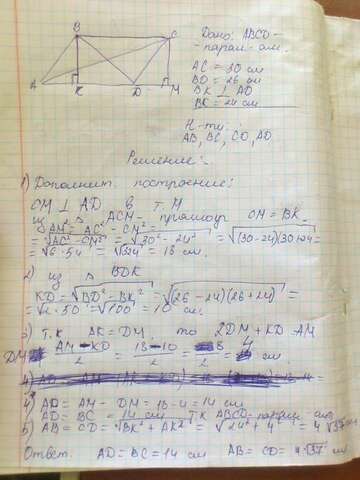 B
C
A
K
D
M
Дано: ABCD -
- парал - ам.
AC = 30 см
BD = 26 см
BK ⊥ AD
BK = 24 см
Н-ти:
AB, BC, CD, AD
Решение:
1) Дополнит. построение:
CM ⊥ AD в т. M
из Δ ACM - прямоуг CM = BK
AM = √AC² - CM² =
= √AC² - CM² = √30² - 24² = √(30-24)(30+24) =
= √6·54 = √324 = 18 см.
2) из Δ BDK
KD = √BD² - BK² = √(26-24)(26+24) =
= √2·50 = √100 = 10 см.
3) т.к AK = DM, то 2DM + KD = AM
DM = AM - KD / 2 = 18 - 10 / 2 = 8 / 2 = 4 см
4) AD = AM - DM = 18 - 4 = 14 см
AD = BC = 14 см т.к ABCD - парал - ам
5) AB = CD = √BK² + AK² = √24² + 4² = 4√37 см
Ответ: AD = BC = 14 см AB = CD = 4√37 см